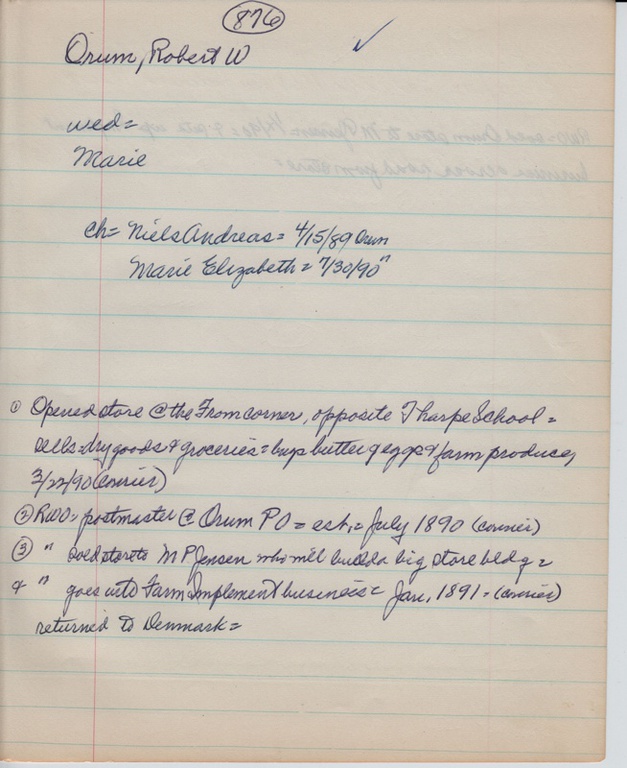 876
Orum, Robert W
wed=
Marie
ch= Niels Andreas = 4/15/89 Orum
Marie Elizabeth = 7/30/90 "
① Opened store @ the From corner, opposite Tharpe School =
sells dry goods & groceries = buys butter & eggs & farm produce,
3/22/90 (courier)
② RWO = postmaster @ Orum PO = est. = July 1890 (courier)
③ " sold store to M P Jensen who will build a big store bldg =
& " goes into Farm Implement business = Jan, 1891 = (courier)
returned to Denmark =